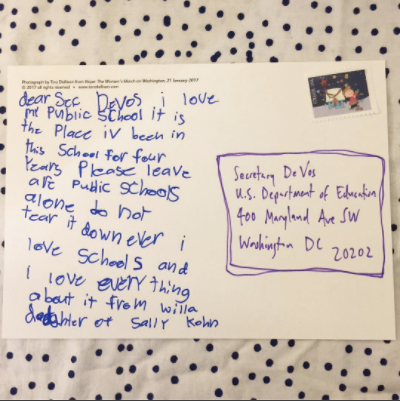 Photograph by Tina Dalboni from Hope: The Women's March on Washington, 21 January 2017
© 2017 all rights reserved
dear Sec DeVos i love
my Public School it is
the Place iv been in
this School for four
years Please leave
are Public Schools
alone do not
tear it down ever i
love Schools and
I love everything
about it from willa
daughter of Sally Kohn
Secretary DeVos
U.S. Department of Education
400 Maryland Ave SW
Washington DC
20202